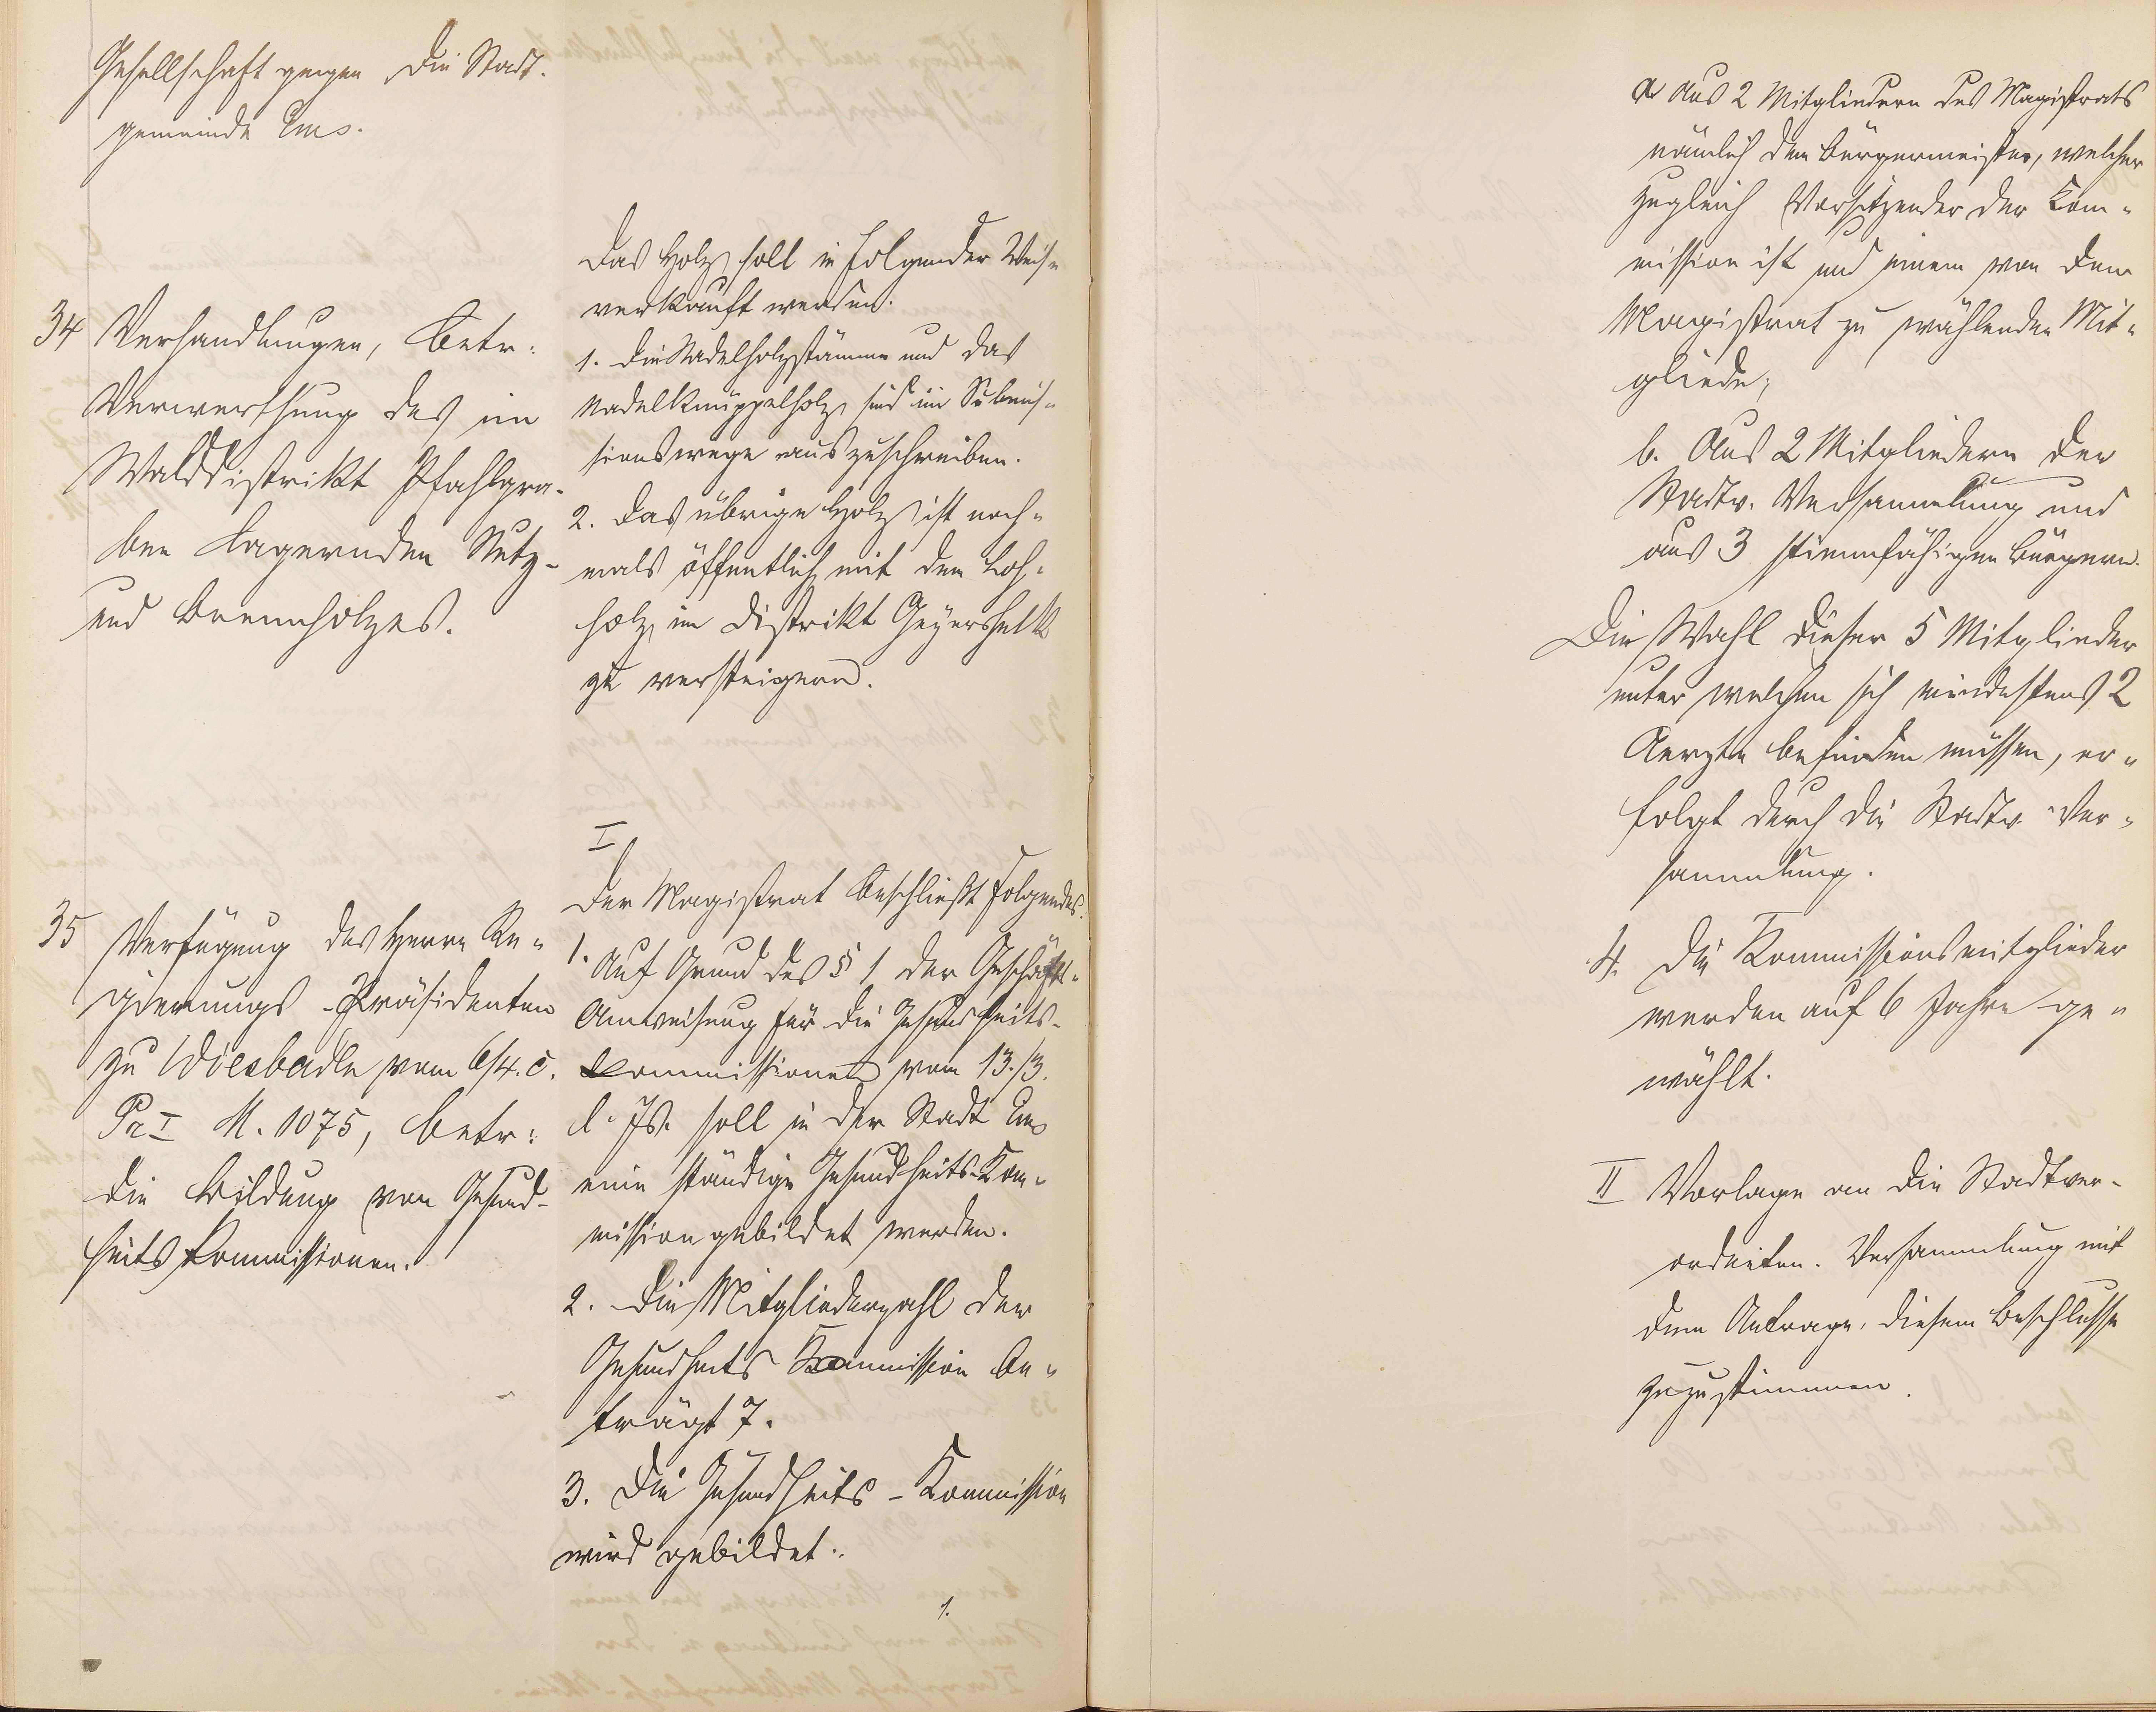 Gesellschaft gegen die Stadt-
gemeinde Ems.
34 Verhandlungen, betr:
Verwerthung des im
Walddistrikt Pfahlgra-
ben lagernden Nutz-
und Brennholzes.
Das Holz soll in folgender Weise
verkauft werden.
1. Die Nadelholzstämme und das
Nadelknüppelholz sind im Submis-
sionswege auszuschreiben.
2. Das übrige Holz ist noch-
mals öffentlich mit dem Loh-
holz im Distrikt
zu versteigern.
35 Verfügung des Herrn Re-
gierungs-Präsidenten
zu Wiesbaden vom 6/4. c.
Pr I M. 1075, betr:
die Bildung von Gesund-
heitskommissionen.
I
Der Magistrat beschließt folgendes:
1. Auf Grund des § 1 der Geschäfts-
Anweisung für die Gesundheits-
kommissionen vom 13./3.
d. Js. soll in der Stadt Ems
eine ständige Gesundheits-Kom-
mission gebildet werden.
2. Die Mitgliederzahl der
Gesundheits Kommission be-
trägt 7.
3. Die Gesundheits-Kommission
wird gebildet:
1.
a. Aus 2 Mitgliedern des Magistrats
nämlich dem Bürgermeister, welcher
zugleich Vorsitzender der Kom-
mission ist und einem von dem
Magistrat zu wählenden Mit-
gliede;
b. Aus 2 Mitgliedern der
Stadtv. Versammlung und
aus 3 stimmfähigen Bürgern.
Die Wahl dieser 5 Mitglieder
unter welchen sich mindestens 2
Aerzte befinden müssen, er-
folgt durch die Stadtv. Ver-
sammlung.
4. Die Kommissionsmitglieder
werden auf 6 Jahre ge-
wählt.
II Vorlage an die Stadtver-
ordneten. Versammlung mit
dem Antrage, diesem Beschlusse
zuzustimmen.